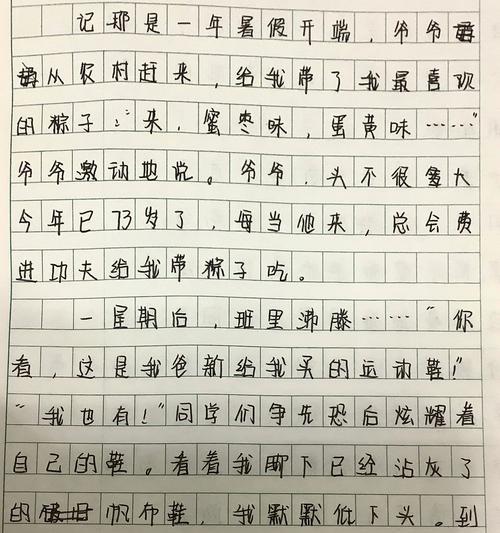 记那是一年暑假开端，爷爷
从农村赶来，给我带了我最喜欢
的粽子：“来，蜜枣味，蛋黄味……”
爷爷激动地说。爷爷，头不很大
今年已73岁了，每当他来，总会费
进功夫给我带粽子吃。
一星期后，班里沸腾……“你
看，这是我爸新给我买的运动鞋！”
“我也有！”同学们争先恐后炫耀着
自己的鞋。看着我脚下已经沾灰了
的帆布鞋，我默默低下头。到